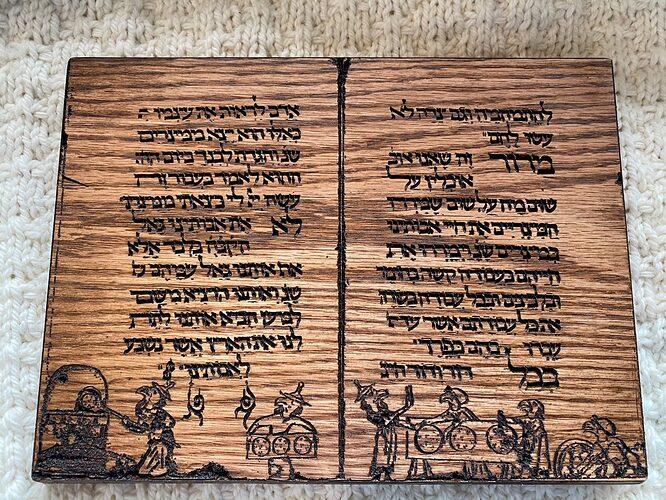 להתמהמה וגם צדה לא
עשו להם
מרור זה שאנו או
אוכלין על
שום מה על שום שמררו
המצריים את חיי אבותינו
במצרים שנ' וימררו את
חייהם בעבודה קשה בחומר
ובלבנים ובכל עבודה בשדה
את כל עבודתם אשר
עבדו בהם בפרך
בכל דור ודור
אדם לראות את עצמו
כאלו הוא יצא ממצרים
שנ' והגדת לבנך ביום הה
ההוא לאמר בעבור זה
עשה יי לי בצאתי ממצרים
לא את אבותינו גאל
הקב"ה בלבד אלא
אף אותנו גאל עמהם ש
שנ' ואותנו הוציא משם
למען הביא אותנו לתת
לנו את הארץ אשר נשבע
לאבותינו